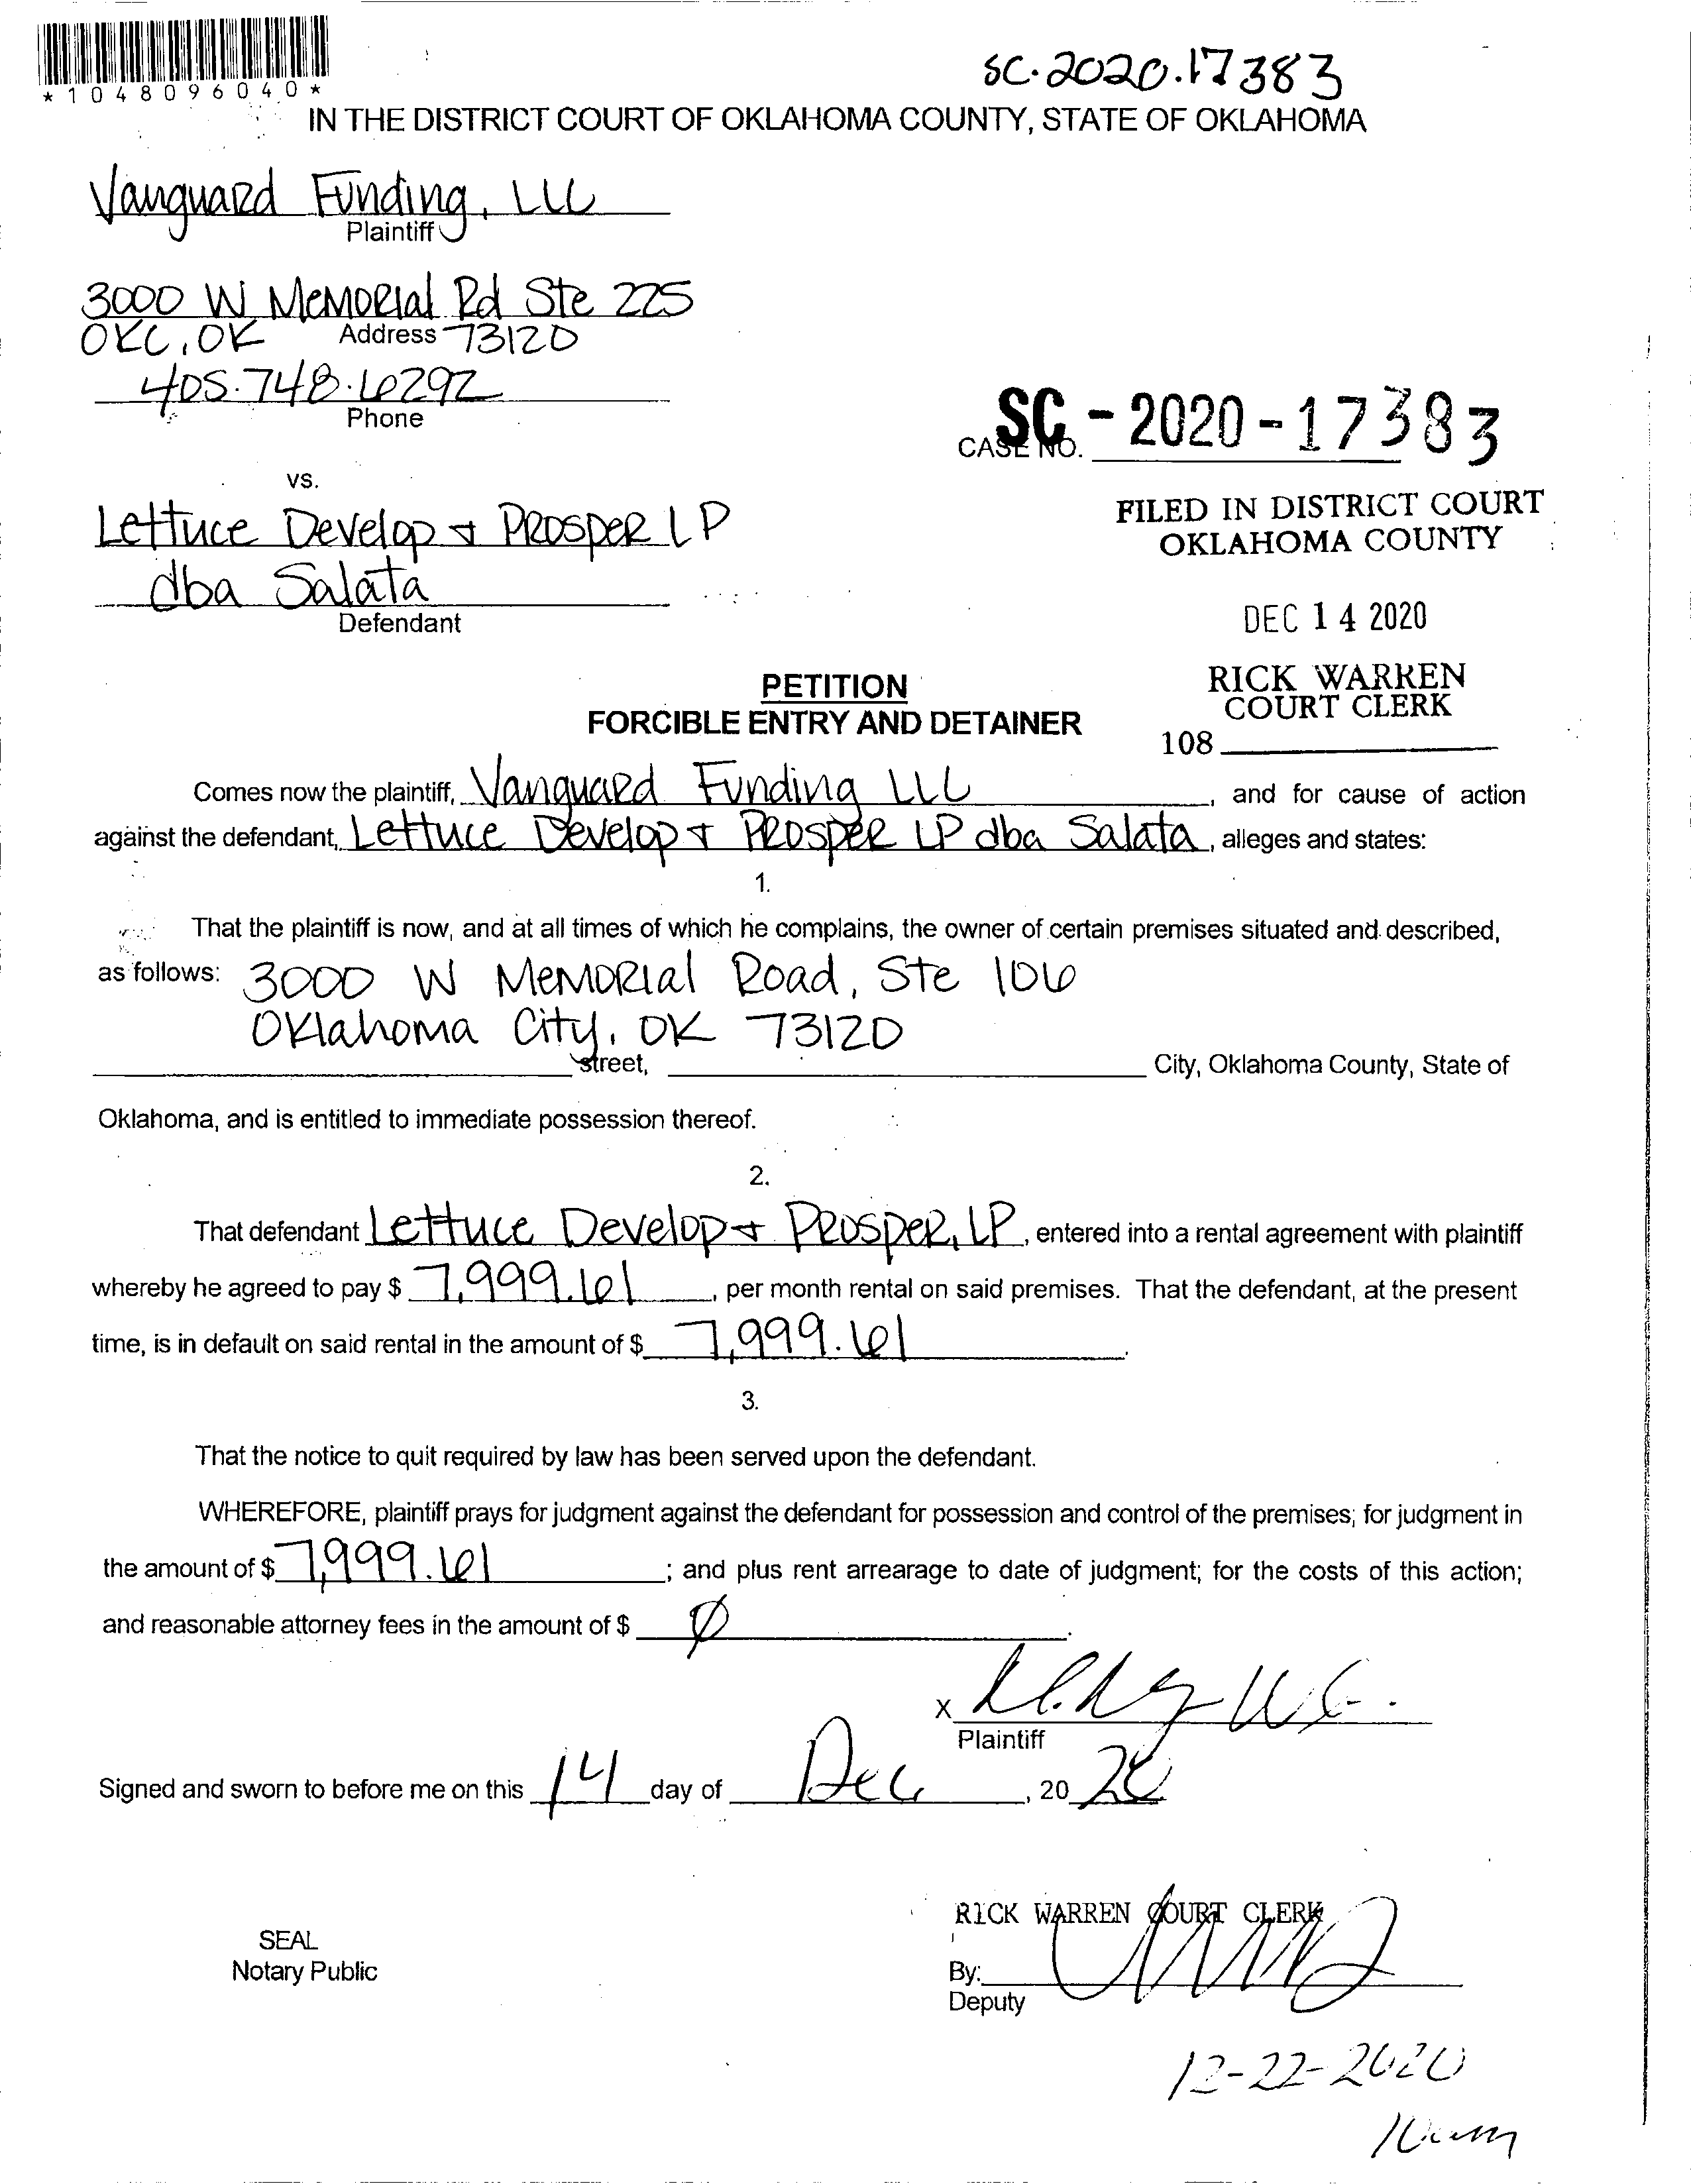 SC.2020.17383
*1048096040*
IN THE DISTRICT COURT OF OKLAHOMA COUNTY, STATE OF OKLAHOMA
Vanguard Funding, LLC
Plaintiff
3000 W Memorial Rd Ste 225
OKC, OK Address 73120
405.748.6292
Phone
CASE NO. SC - 2020 - 17383
vs.
Lettuce Develop + Prosper LP
dba Salata
Defendant
FILED IN DISTRICT COURT
OKLAHOMA COUNTY
DEC 14 2020
RICK WARREN
COURT CLERK
108
PETITION
FORCIBLE ENTRY AND DETAINER
Comes now the plaintiff, Vanguard Funding LLC, and for cause of action
against the defendant, Lettuce Develop + Prosper LP dba Salata, alleges and states:
1.
That the plaintiff is now, and at all times of which he complains, the owner of certain premises situated and described,
as follows: 3000 W Memorial Road, Ste 106
Oklahoma City, OK 73120
street, City, Oklahoma County, State of
Oklahoma, and is entitled to immediate possession thereof.
2.
That defendant Lettuce Develop + Prosper, LP, entered into a rental agreement with plaintiff
whereby he agreed to pay $ 7,999.61, per month rental on said premises. That the defendant, at the present
time, is in default on said rental in the amount of $ 7,999.61.
3.
That the notice to quit required by law has been served upon the defendant.
WHEREFORE, plaintiff prays for judgment against the defendant for possession and control of the premises; for judgment in
the amount of $ 7,999.61; and plus rent arrearage to date of judgment; for the costs of this action;
and reasonable attorney fees in the amount of $ Ø.
X
Plaintiff
Signed and sworn to before me on this 14 day of Dec, 20 20
RICK WARREN COURT CLERK
SEAL
Notary Public
By:
Deputy
12-22-2020
10am